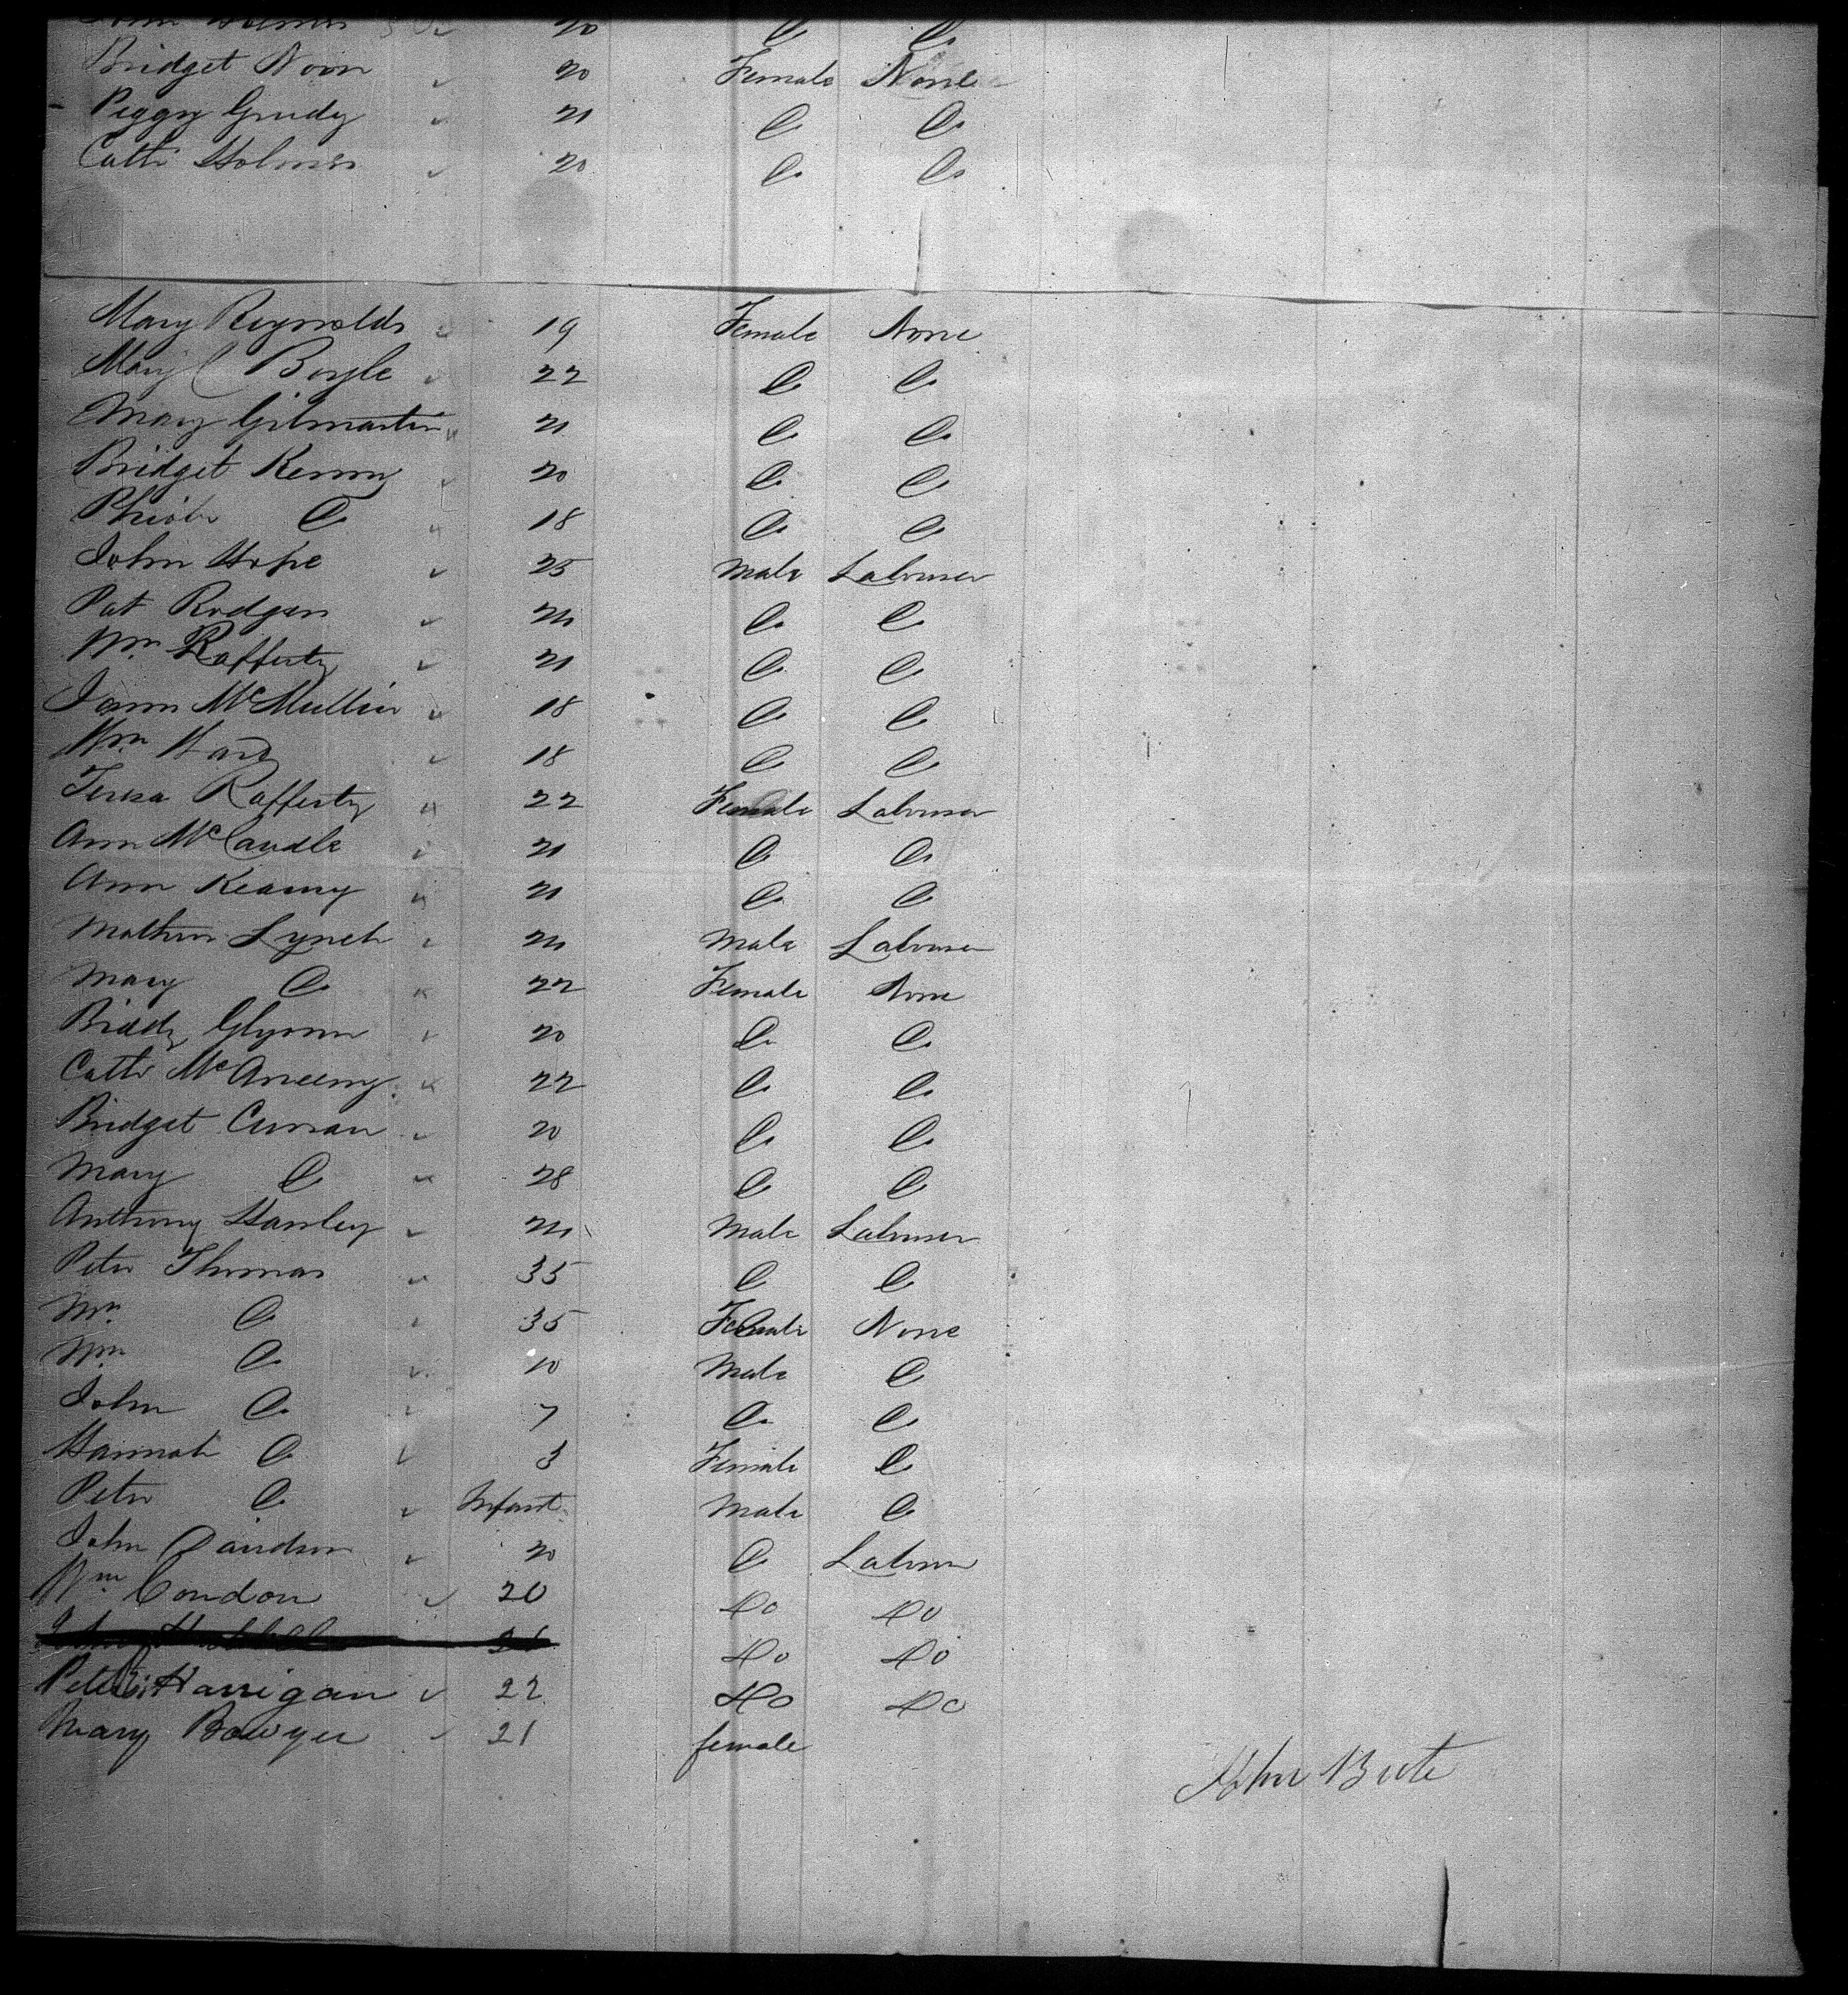 John Holmes 20 Do Do
Bridget Noon 20 Female None
Peggy Grudy 21 Do Do
Cathe Holmes 20 Do Do
Mary Reynolds 19 Female None
Mary C Boyle 22 Do Do
Mary Gilmartin 21 Do Do
Bridget Kenny 20 Do Do
Do 18 Do Do
John Hope 25 Male Labourer
Pat Rodgers Do Do
Wm Rafferty 21 Do Do
McMullin 18 Do Do
Wm Ward 18 Do Do
Teresa Rafferty 22 Female Labourer
Ann McCardle 21 Do Do
Ann Kearny 21 Do Do
Mathew Lynch Male Labourer
Mary Do 22 Female None
Biddy Glynn 20 Do Do
Cathe McAneeny 22 Do Do
Bridget Curran 20 Do Do
Mary Do 28 Do Do
Anthony Hanley Male Labourer
Peter Thomas 35 Do Do
Do 35 Female None
Wm Do 10 Male Do
John Do 7 Do Do
Hannah Do 3 Female Do
Peter Do Infant Male Do
John Davidson 20 Do Labourer
Wm Condon 20 Do Do
Do Do
Peter Harrigan 22 Do Do
Mary Bowyer 21 female
John